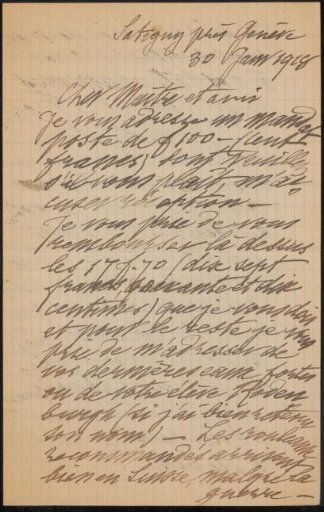 Satigny près Genève
30 Janv 1918
Cher Maître et ami
Je vous adresse un mandat
poste de f 100 – (cent
francs) dont veuillez
s'il vous plaît m'ac
cuser réception –
Je vous prie de vous
rembourser là dessus
les 17 f. 70 (dix sept
francs soixante et dix
centimes) que je vous dois
et pour le reste je vous
prie de m'adresser de
vos dernières eaux fortes
ou de votre élève Rosen
burgh (si j'ai bien retenu
son nom) – Les rouleaux
recommandés arrivent
bien en Suisse, malgré la
guerre –